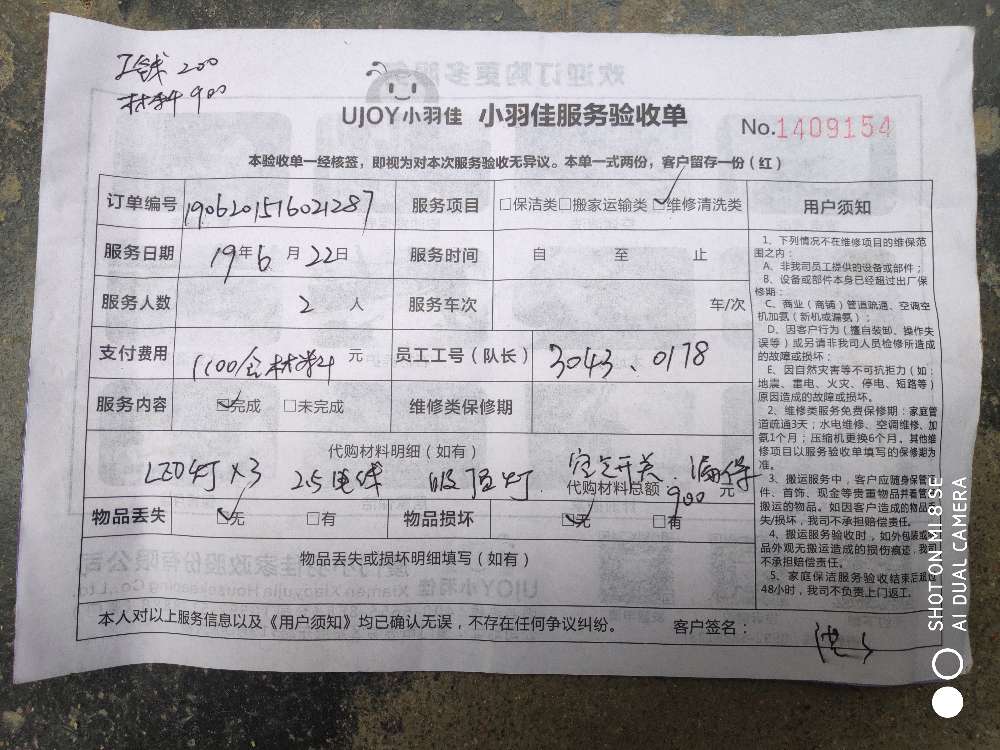 工钱 200
材料 900
UJOY小羽佳 小羽佳服务验收单
No.1409154
本验收单一经核签，即视为对本次服务验收无异议。本单一式两份，客户留存一份（红）
订单编号 1906201516021287 服务项目 □保洁类□搬家运输类☑维修清洗类 用户须知
服务日期 19年6月22日 服务时间 自 至 止
服务人数 2 人 服务车次 车/次
支付费用 1100含材料 元 员工工号（队长） 3043、0178
服务内容 ☑完成 □未完成 维修类保修期
代购材料明细（如有）
LED灯×3 2.5电线 吸顶灯 空气开关、漏保
代购材料总额 900 元
物品丢失 ☑无 □有 物品损坏 ☑无 □有
物品丢失或损坏明细填写（如有）
本人对以上服务信息以及《用户须知》均已确认无误，不存在任何争议纠纷。 客户签名：
1、下列情况不在维修项目的维保范
围之内：
A、非我司员工提供的设备或部件；
B、设备或部件本身已经超过出厂保
修期；
C、商业（商铺）管道疏通、空调空
机加氨（新机或漏氨）；
D、因客户行为（擅自装卸、操作失
误等）或另请非我司人员检修所造成
的故障或损坏；
E、因自然灾害等不可抗拒力（如：
地震、雷电、火灾、停电、短路等）
原因造成的故障或损坏。
2、维修类服务免费保修期：家庭管
道疏通3天；水电维修、空调维修、加
氨1个月；压缩机更换6个月。其他维
修项目以服务验收单填写的保修期为
准。
3、搬运服务中，客户应随身保管
件、首饰、现金等贵重物品并看管
搬运的物品。如因客户造成的物品丢
失/损坏，我司不承担赔偿责任。
4、搬运服务验收时，如外包装或
品外观无搬运造成的损伤痕迹，我司
不承担赔偿责任。
5、家庭保洁服务验收结束后超过
48小时，我司不负责上门返工。
SHOT ON MI 8 SE
AI DUAL CAMERA